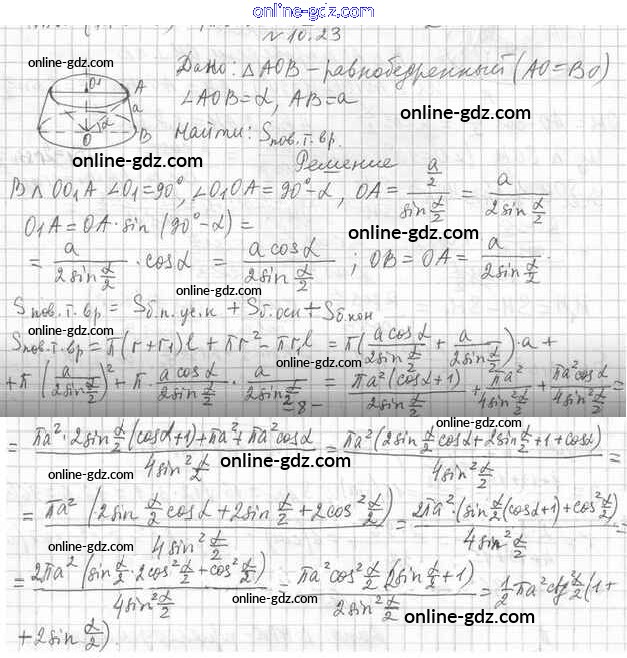 online-gdz.com
N 10.23
online-gdz.com
Дано: △AOB – равнобедренный (AO=BO)
∠AOB=α, AB=a
online-gdz.com
O1 A a α O B
Найти: Sпов.т.вр.
online-gdz.com
online-gdz.com
Решение
В △ OO1A ∠O1=90°, ∠O1OA=90°-α, OA = (a/2)/(sin α/2) = a/(2sin α/2)
O1A = OA·sin(90°-α) =
online-gdz.com
= a/(2sin α/2) · cosα = (a cosα)/(2sin α/2) ; OB = OA = a/(2sin α/2).
online-gdz.com
Sпов.т.вр = Sб.п.ус.к + Sб.осн + Sб.кон
online-gdz.com
Sпов.т.вр = π(r+r1)l + πr² - πr1l = π((a cosα)/(2sin α/2) + a/(2sin α/2))·a +
+ π (a/(2sin α/2))² + π · (a cosα)/(2sin α/2) · a/(2sin α/2) = (πa²(cosα+1))/(2sin α/2) + πa²/(4sin² α/2) + (πa²cosα)/(4sin² α/2) =
– 8 –
online-gdz.com
online-gdz.com
= (πa²·2sin α/2 (cosα+1)+πa²+πa²cosα)/(4sin² α/2) = (πa²(2sin α/2 cosα+2sin α/2+1+cosα))/(4sin² α/2) =
online-gdz.com
online-gdz.com
= (πa² (2sin α/2 cosα + 2sin α/2 + 2cos² α/2))/(4sin² α/2) = (2πa²·(sin α/2 (cosα+1)+cos² α/2))/(4sin² α/2) =
online-gdz.com
online-gdz.com
= (2πa² (sin α/2 · 2cos² α/2 + cos² α/2))/(4sin² α/2) = (πa²cos² α/2 (2sin α/2 + 1))/(2sin² α/2) = 1/2 πa² ctg² α/2 (1+
online-gdz.com
online-gdz.com
+ 2sin α/2).
online-gdz.com